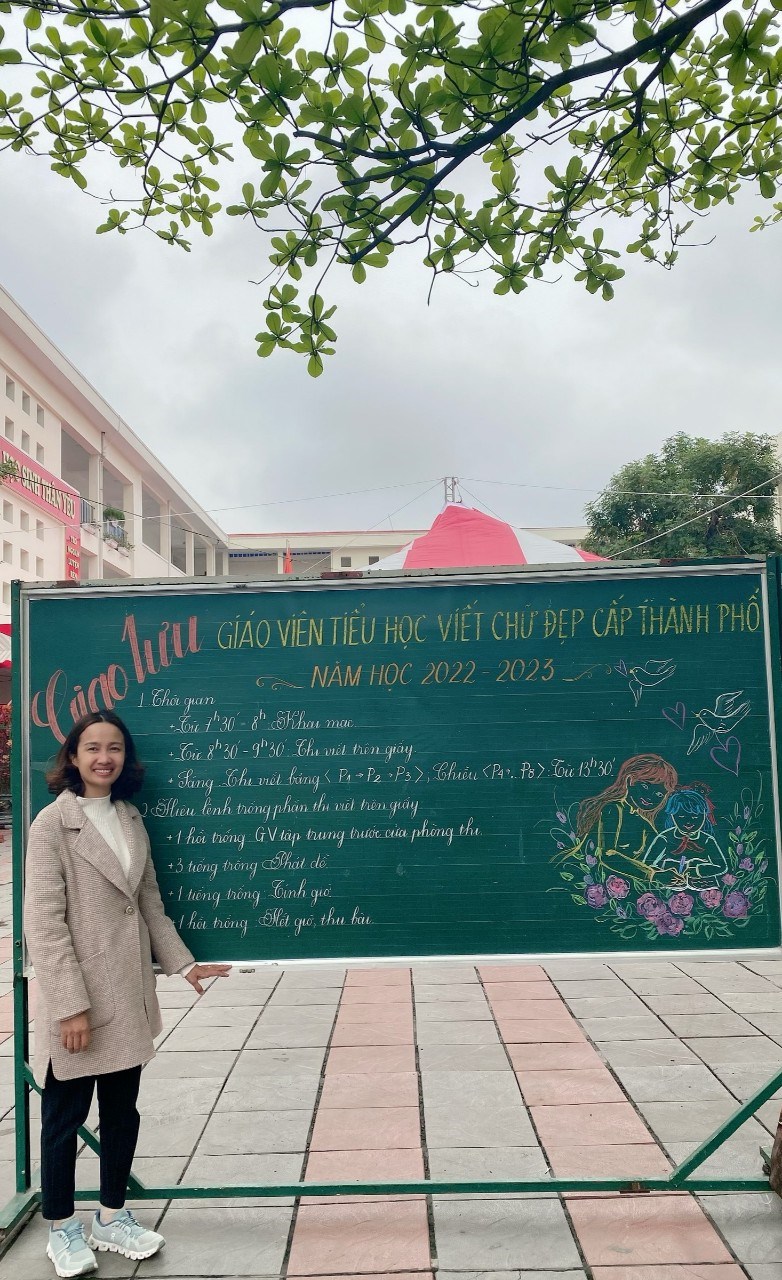 HỌC SINH THÂN YÊU
Giao lưu GIÁO VIÊN TIỂU HỌC VIẾT CHỮ ĐẸP CẤP THÀNH PHỐ
NĂM HỌC 2022 - 2023
1. Thời gian
+ Từ 7h30' - 8h Khai mạc
+ Từ 8h30' - 9h30' : Thi viết trên giấy.
+ Sáng Thi viết bảng < P1 → P2 → P3 >, Chiều <P4→ P8>: Từ 13h30'
2. Hiệu lệnh trống phần thi viết trên giấy
+ 1 hồi trống GV tập trung trước cửa phòng thi.
+ 3 tiếng trống Phát đề
+ 1 tiếng trống Tính giờ
+ 1 hồi trống Hết giờ, thu bài.